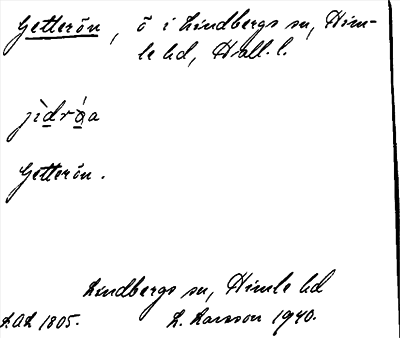 Getterön, ö i Lindbergs sn, Him-
le hd, Hall. l.
jìdrǻa
Getterön.
Lindbergs sn, Himle hd
LAL 1805. L. Larsson 1940.